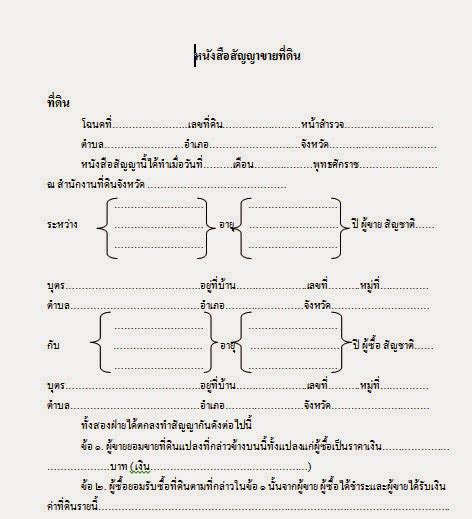 หนังสือสัญญาขายที่ดิน
ที่ดิน
โฉนดที่..............................เลขที่ดิน..............................หน้าสำรวจ..............................
ตำบล..............................อำเภอ..............................จังหวัด..............................
หนังสือสัญญานี้ได้ทำเมื่อวันที่...............เดือน....................พุทธศักราช..............................
ณ สำนักงานที่ดินจังหวัด ..............................
ระหว่าง { .............................. } อายุ { .............................. } ปี ผู้ขาย สัญชาติ......
บุตร..............................อยู่ที่บ้าน..............................เลขที่..........หมู่ที่....................
ตำบล..............................อำเภอ..............................จังหวัด..............................
กับ { .............................. } อายุ { .............................. } ปี ผู้ซื้อ สัญชาติ......
บุตร..............................อยู่ที่บ้าน..............................เลขที่..........หมู่ที่....................
ตำบล..............................อำเภอ..............................จังหวัด..............................
ทั้งสองฝ่ายได้ตกลงทำสัญญากันดังต่อไปนี้
ข้อ ๑. ผู้ขายยอมขายที่ดินแปลงที่กล่าวข้างบนนี้ทั้งแปลงแก่ผู้ซื้อเป็นราคาเงิน....................
....................บาท (เงิน..............................)
ข้อ ๒. ผู้ซื้อยอมรับซื้อที่ดินตามที่กล่าวในข้อ ๑ นั้นจากผู้ขาย ผู้ซื้อได้ชำระและผู้ขายได้รับเงิน
ค่าที่ดินรายนี้............................................................